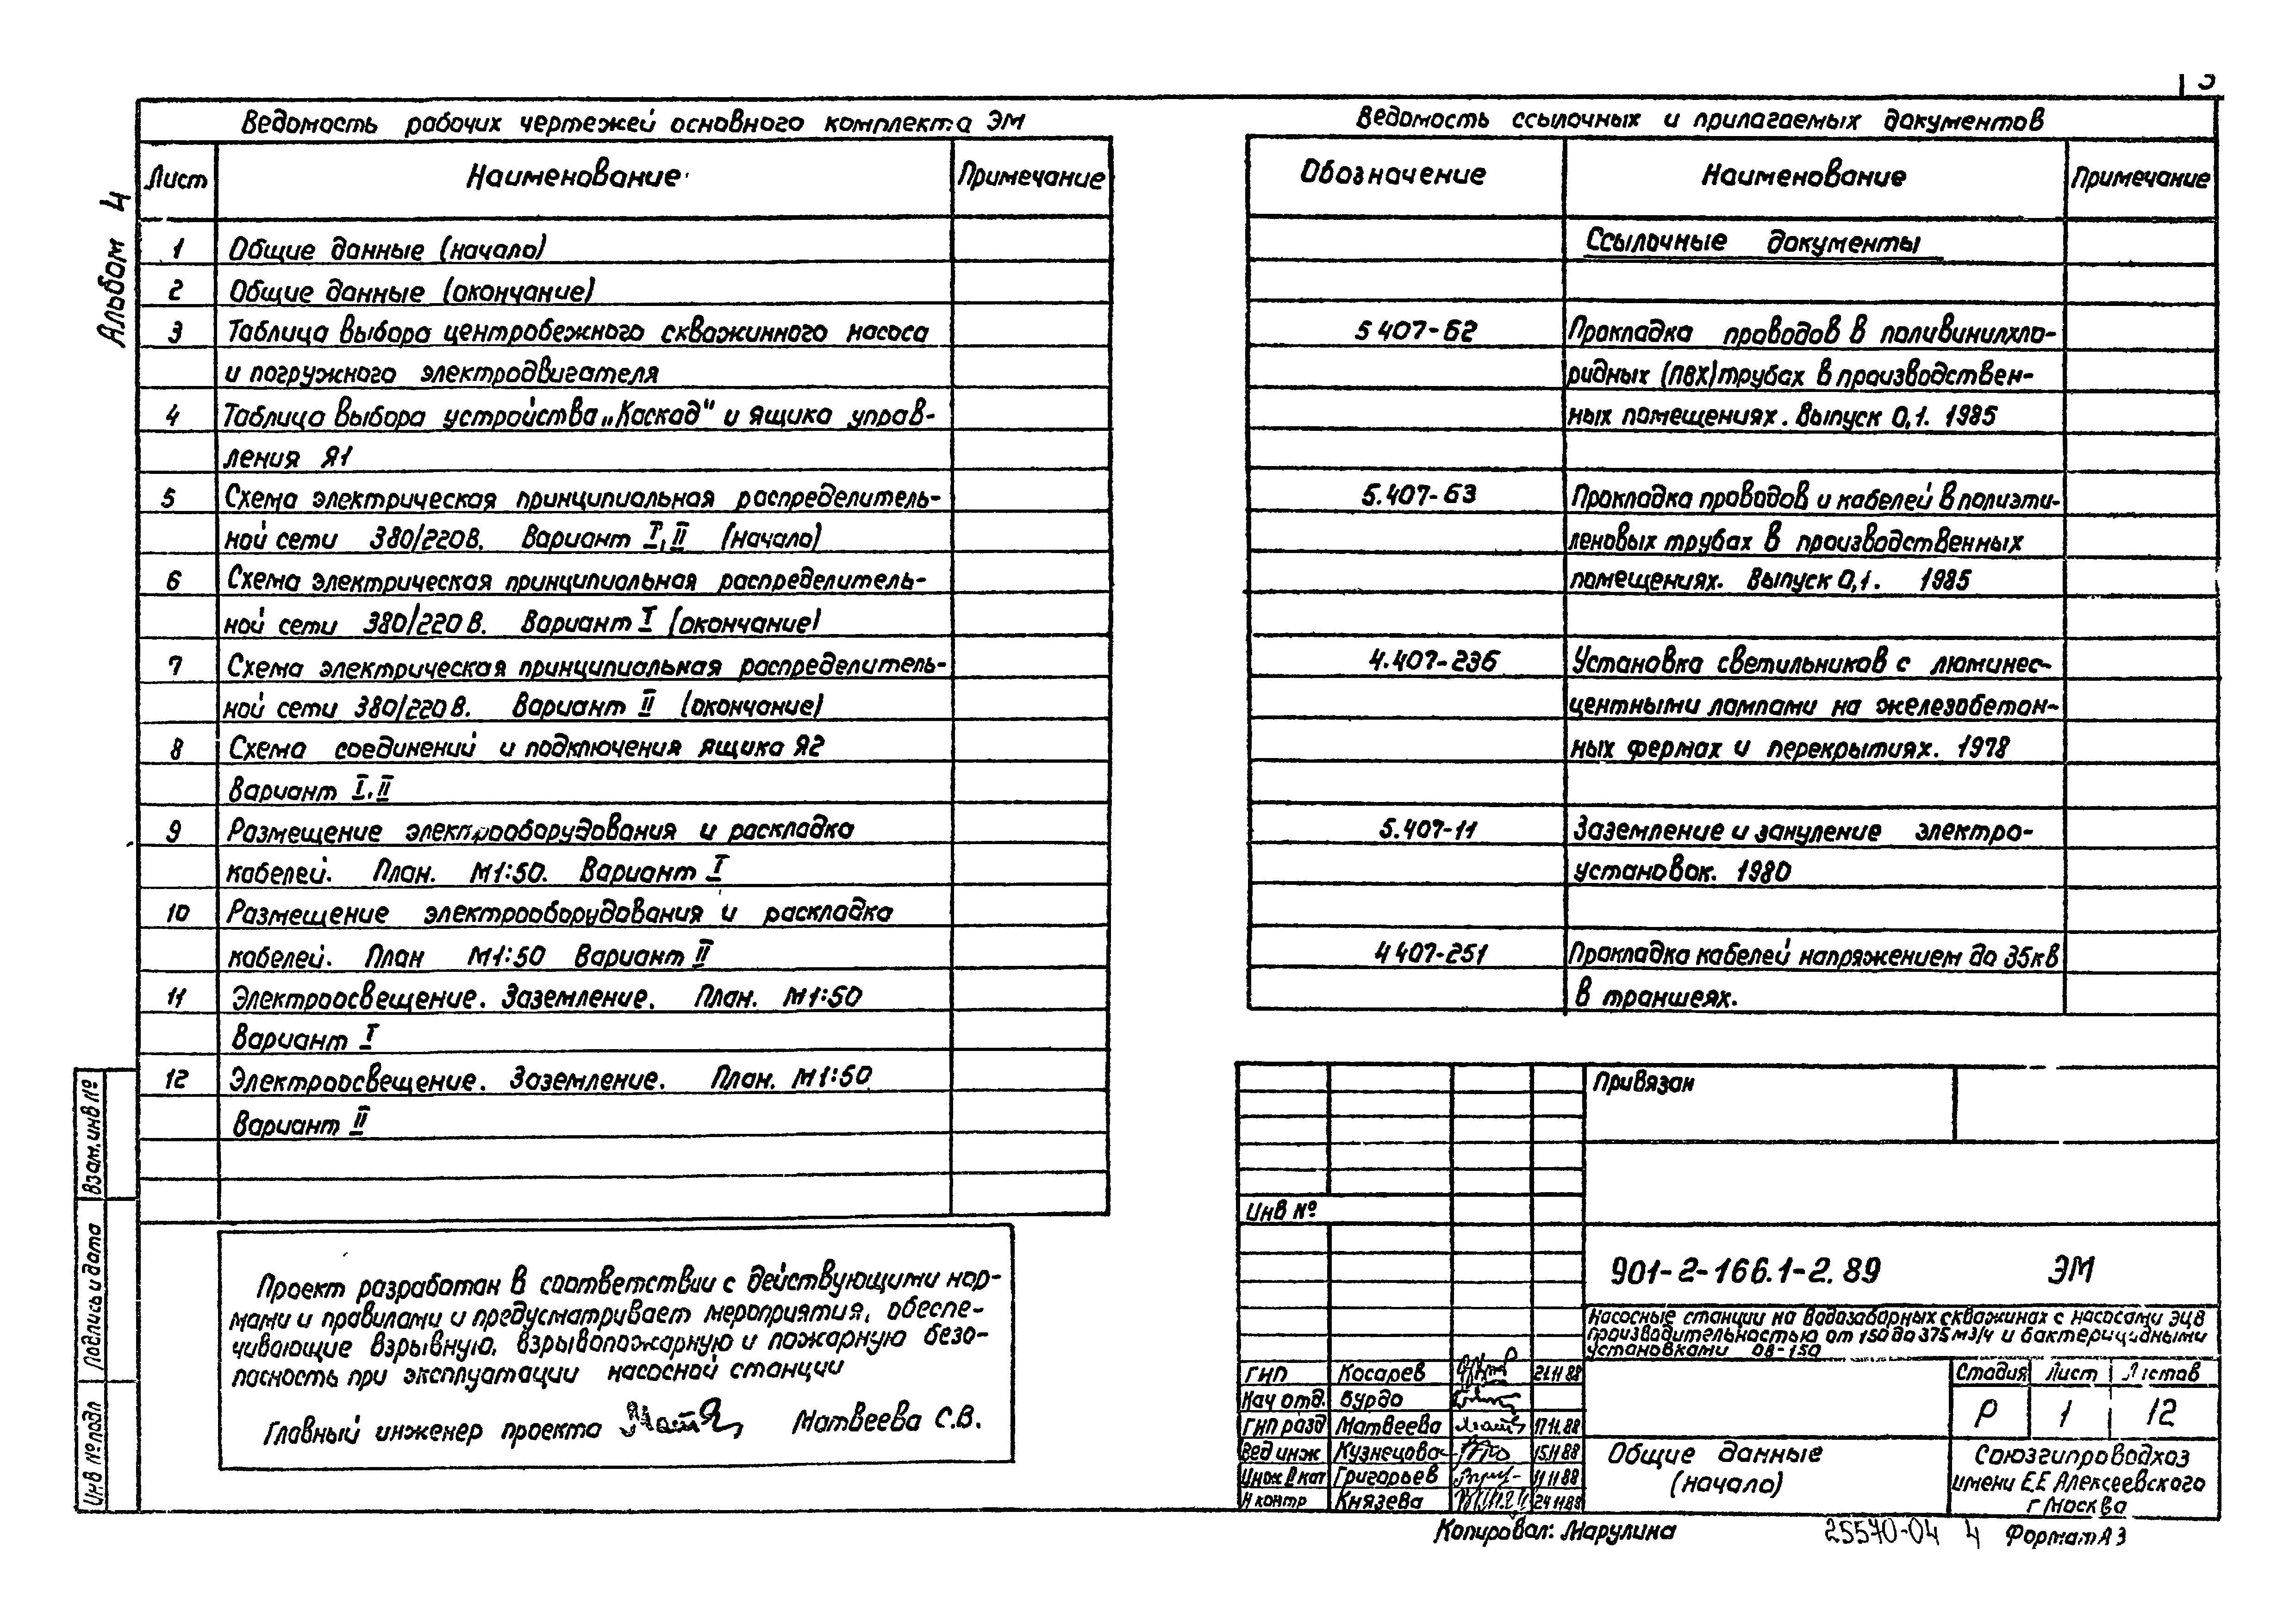 3
Альбом 4
Ведомость рабочих чертежей основного комплекта ЭМ
Лист Наименование Примечание
1 Общие данные (начало)
2 Общие данные (окончание)
3 Таблица выбора центробежного скважинного насоса
и погружного электродвигателя
4 Таблица выбора устройства „Каскад" и ящика управ-
ления Я1
5 Схема электрическая принципиальная распределитель-
ной сети 380/220В. Вариант I, II (начало)
6 Схема электрическая принципиальная распределитель-
ной сети 380/220 В. Вариант I (окончание)
7 Схема электрическая принципиальная распределитель-
ной сети 380/220 В. Вариант II (окончание)
8 Схема соединений и подключения ящика Я2
Вариант I. II
9 Размещение электрооборудования и раскладка
кабелей. План. М1:50. Вариант I
10 Размещение электрооборудования и раскладка
кабелей. План М1:50 Вариант II
11 Электроосвещение. Заземление. План. М1:50
Вариант I
12 Электроосвещение. Заземление. План. М1:50
Вариант II
Проект разработан в соответствии с действующими нор-
мами и правилами и предусматривает мероприятия, обеспе-
чивающие взрывную, взрывопожарную и пожарную безо-
пасность при эксплуатации насосной станции
Главный инженер проекта Матвеева С.В.
Взам.инв №
Подпись и дата
Инв № подл
Ведомость ссылочных и прилагаемых документов
Обозначение Наименование Примечание
Ссылочные документы
5 407-62 Прокладка проводов в поливинилхло-
ридных (ПВХ) трубах в производствен-
ных помещениях. Выпуск 0,1. 1985
5.407-63 Прокладка проводов и кабелей в полиэти-
леновых трубах в производственных
помещениях. Выпуск 0,1. 1985
4.407-236 Установка светильников с люминес-
центными лампами на железобетон-
ных фермах и перекрытиях. 1978
5.407-11 Заземление и зануление электро-
установок. 1980
4 407-251 Прокладка кабелей напряжением до 35кв
в траншеях.
Привязан
Инв №
901-2-166.1-2.89 ЭМ
Насосные станции на водозаборных скважинах с насосами ЭЦВ
производительностью от 150 до 375 м3/ч и бактерицидными
установками ОВ-150
ГИП Косарев 21.11 88
Нач отд. Бурдо
ГИП разд Матвеева 17 11.88
Вед инж Кузнецова 15.11 88
Инж II кат Григорьев 11 11 88
Н контр Князева 24 11 88
Стадия Лист Листов
Р 1 12
Общие данные
(начало)
Союзгипроводхоз
имени Е.Е Алексеевского
г Москва
Копировал: Марулина 25570-04 4 Формат А3